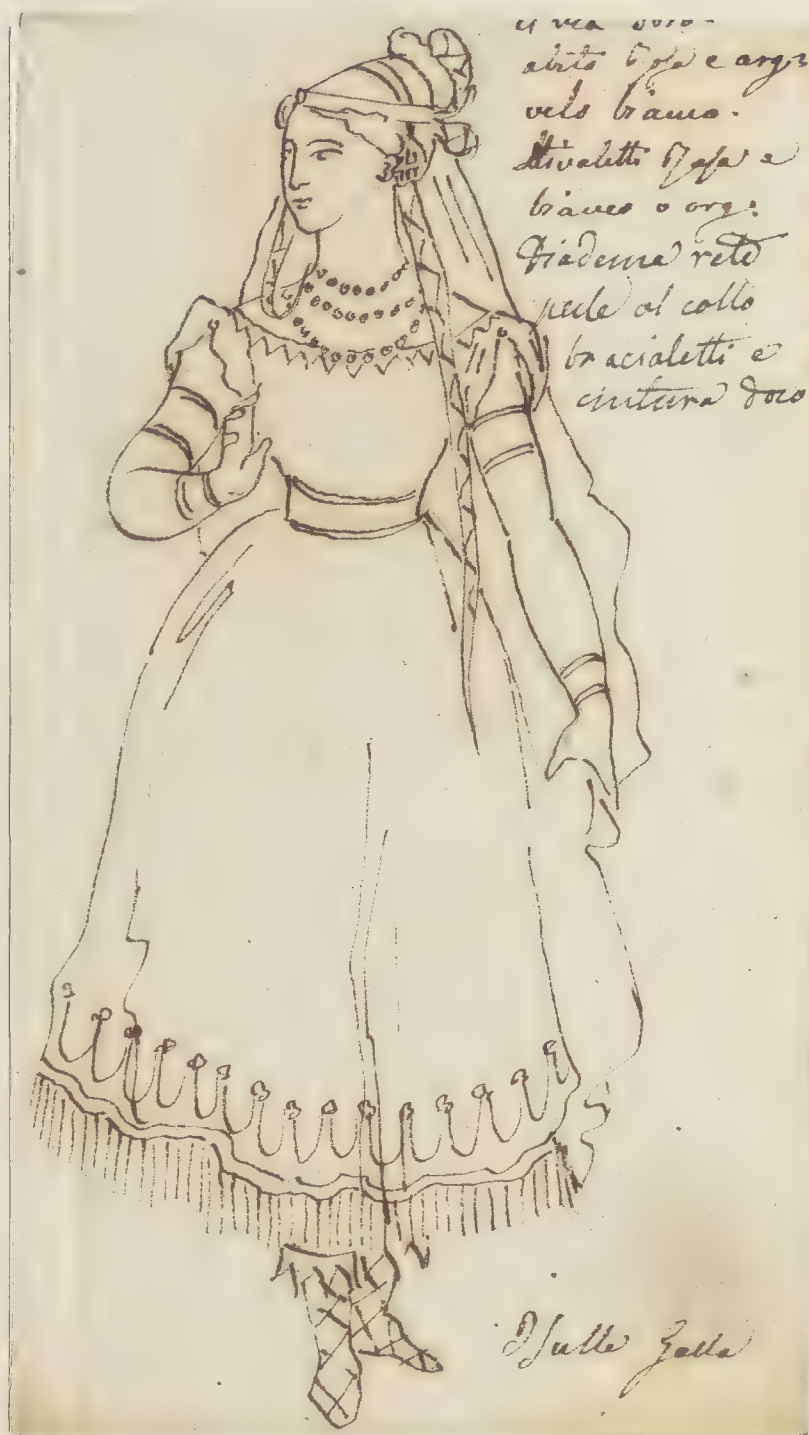 abito rosa e arg:
velo bianco.
Stivaletti rosa e
bianco o arg:
Diadema rete
perle al collo
bracialetti e
cintura d'oro
Galla